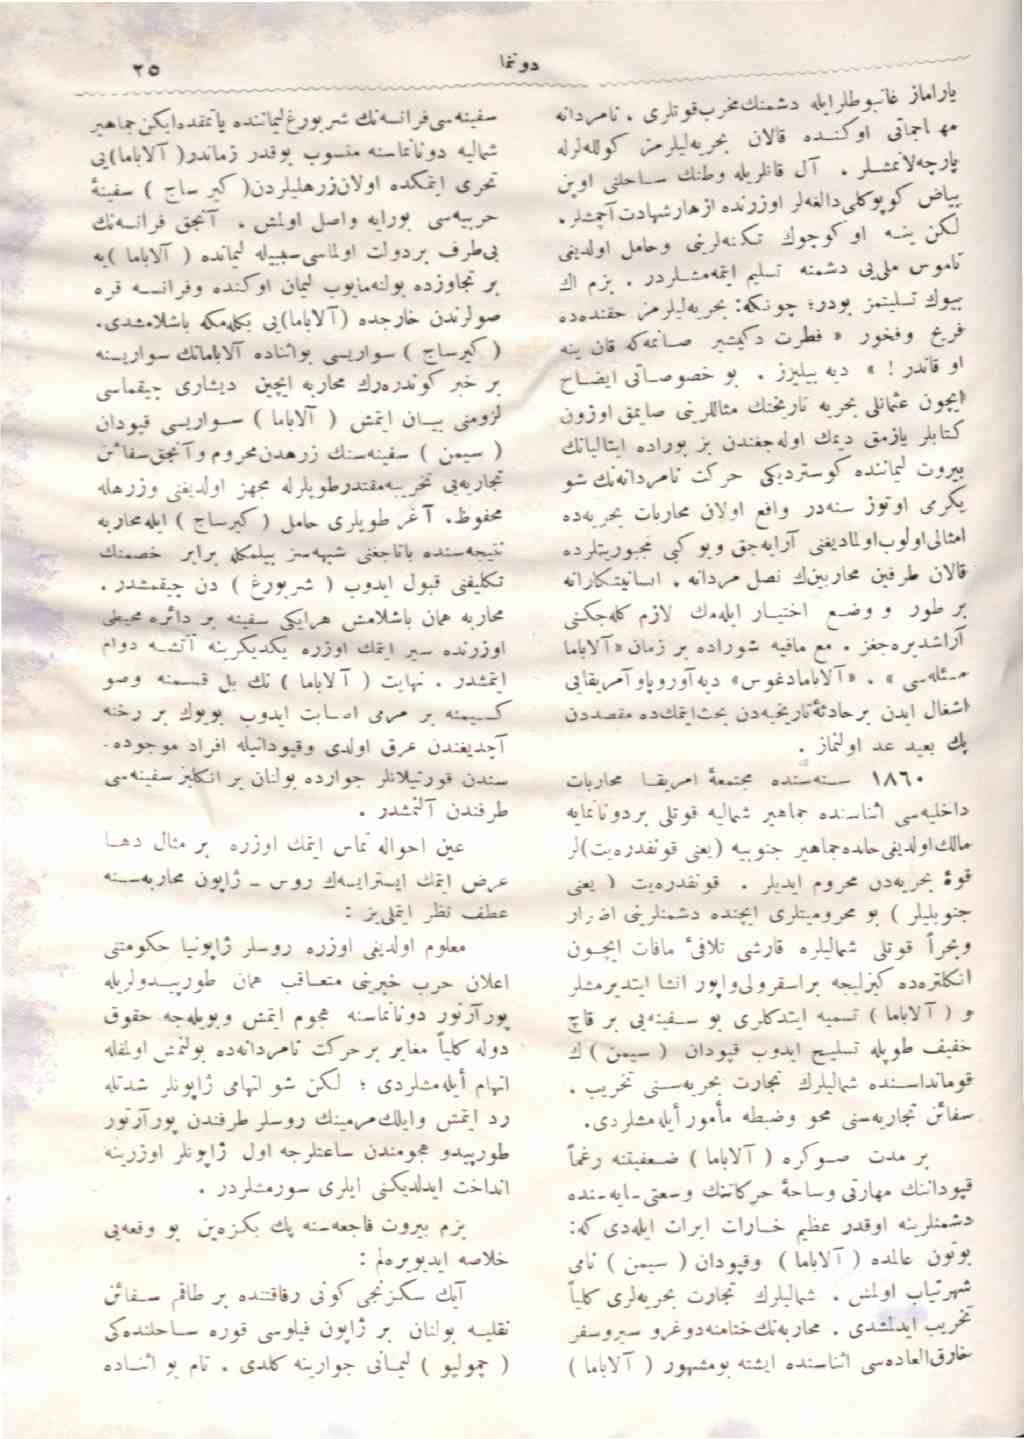 دوننما
٢٥
یاراماز غانبوطلرایله دشمنك مخرب قوتلری . نامردانه
مهاجماتی اوكنده قالان بحریه‌لیلرمز كولله‌لرله
پارچه‌لانمشلر . آل قانلریله وطنك ساحلنی اوپن
بیاض كوپوكلی دالغه‌لر اوزرنده ازهار شهادت آچمشلر.
لكن ینه او كوچوك تكنه‌لرینی وحامل اولدیغی
ناموس ملی‌یی دشمنه تسلیم ایتمه‌مشلردر . بزم اك
بیوك تسلیتمز بودر؛ چونكه: بحریه‌لیلرمز حقنده‌ده
فریح وفخور « فطرت دكیشیر صانمه‌كه قان ینه
او قاندر ! » دیه بیلیرز . بو خصوصاتی ایضاح
ایچون عثمانلی بحریه تاریخنك مثاللرینی صایمق اوزون
كتابلر یازمق دیمك اوله‌جغندن بز بوراده ایتالیانك
بیروت لیماننده كوستردیكی حركت نامردانه‌نك شو
یكرمی اوتوز سنه‌در واقع اولان محاربات بحریه‌ده
امثالی اولوب اولمادیغنی آرایه‌جق وبو كبی مجبوریتلرده
قالان طرفین محاربینك نصل مردانه . انسانیتكارانه
بر طور و وضع اختیار ایله‌مك لازم كله‌جكنی
آراشدیره‌جغز . مع مافیه شوراده بر زمان «آلاباما
مسئله‌سی » . «آلابامادغوس» دیه آوروپا و آمریقایی
اشغال ایدن بر حادثهٔ تاریخیه‌دن بحث ایتمك‌ده مقصددن
پك بعید عد اولنماز .
١٨٦٠ سنه‌سنده مجتمعهٔ امریقا محاربات
داخلیه‌سی اثناسنده جماهیر شمالیه قوتلی بر دونانمایه
مالك اولدیغی حالده جماهیر جنوبیه (یعنی قونفدره‌یت)لر
قوهٔ بحریه‌دن محروم ایدیلر . قونفدره‌یت ( یعنی
جنوبلیلر ) بو محرومیتلری ایچنده دشمنلرینی اضرار
وبحراً قوتلی شمالیلره قارشی تلافیٔ مافات ایچون
انكلتره‌ده كیزلیجه بر اسقرولی واپور انشا ایتدیرمشلر
و ( آلاباما ) تسمیه ایتدكلری بو سفینه‌یی بر قاچ
خفیف طوپله تسلیح ایدوب قپودان ( سیمن ) ك
قومانداسنده شمالیلرك تجارت بحریه‌سنی تخریب .
سفائن تجاریه‌سنی محو وضبطه مأمور أیله‌مشلردی.
بر مدت صوكره ( آلاباما ) ضعفیتنه رغماً
قپوداننك مهارتی وساحهٔ حركاتنك وسعتی سایه‌سنده
دشمنلرینه اوقدر عظیم خسارات ایراث ایله‌دی كه:
بوتون عالمده ( آلاباما ) وقپودان ( سیمن ) نامی
شهرتیاب اولمش . شمالیلرك تجارت بحریه‌لری كلیاً
تخریب ایدلمشدی . محاربه‌نك ختامنه دوغرو سیر وسفر
خارق‌العاده‌سی اثناسنده ایشته بو مشهور ( آلاباما )
سفینه‌سی فرانسه‌نك شربورغ لیماننده یاتمقده ایكن جماهیر
شمالیه دونانماسنه منسوب بوقدر زماندر( آلاباما)یی
تحری ایتمكده اولان زرهلیلردن( كیرساج ) سفینهٔ
حربیه‌سی بورایه واصل اولمش . آنجق فرانسه‌نك
بی‌طرف بر دولت اولماسی سببیله لیمانده ( آلاباما )یه
بر تجاوزده بولنه‌مایوب لیمان اوكنده وفرانسه قره
صولرندن خارجده (آلاباما)یی بكله‌مكه باشلامشدی.
( كیرساج ) سواریسی بو اثناده آلابامانك سواریسنه
بر خبر كوندره‌رك محاربه ایچین دیشاری چیقماسی
لزومنی بیان ایتمش ( آلاباما ) سواریسی قپودان
( سیمن ) سفینه‌سنك زرهدن محروم وآنجق سفائن
تجاریه‌یی تخریبه مقتدر طوپلرله مجهز اولدیغنی وزرهله
محفوظ. آغر طوپلری حامل ( كیرساج ) ایله محاربه
نتیجه‌سنده باتاجغنی شبهه‌سز بیلمكله برابر خصمنك
تكلیفنی قبول ایدوب ( شربورغ ) دن چیقمشدر .
محاربه همان باشلامش هر ایكی سفینه بر دائره محیطی
اوزرنده سیر ایتمك اوزره یكدیكرینه آتشه دوام
ایتمشدر . نهایت ( آلاباما ) نك بل قسمنه وصو
كسیمنه بر مرمی اصابت ایدوب بویوك بر رخنه
آچدیغندن غرق اولدی وقپودانیله افراد موجوده-
سندن قورتیلانلر جوارده بولنان بر انكلیز سفینه‌سی
طرفندن آلنمشدر .
عین احواله تماس ایتمك اوزره بر مثال دها
عرض ایتمك ایسترایسه‌ك روس ـ ژاپون محاربه‌سنه
عطف نظر ایتملی‌یز :
معلوم اولدیغی اوزره روسلر ژاپونیا حكومتنی
اعلان حرب خبرینی متعاقب همان طورپیدولریله
پورآرتور دونانماسنه هجوم ایتمش وبویله‌جه حقوق
دوله كلیاً مغایر بر حركت نامردانه‌ده بولنمش اولمقله
اتهام أیله‌مشلردی ؛ لكن شو اتهامی ژاپونلر شدتله
رد ایتمش وایلك مرمینك روسلر طرفندن پورآرتور
طورپیدو هجومندن ساعتلرجه اول ژاپونلر اوزرینه
انداخت ایدلدیكنی ایلری سورمشلردر .
بزم بیروت فاجعه‌سنه پك بكزه‌ین بو وقعه‌یی
خلاصه ایدیویره‌لم :
آیك سكزنجی كونی رفاقتنده بر طاقم سفائن
نقلیه بولنان بر ژاپون فیلوسی قوره ساحلنده‌كی
( چمولپو ) لیمانی جوارینه كلدی . تام بو اثناده